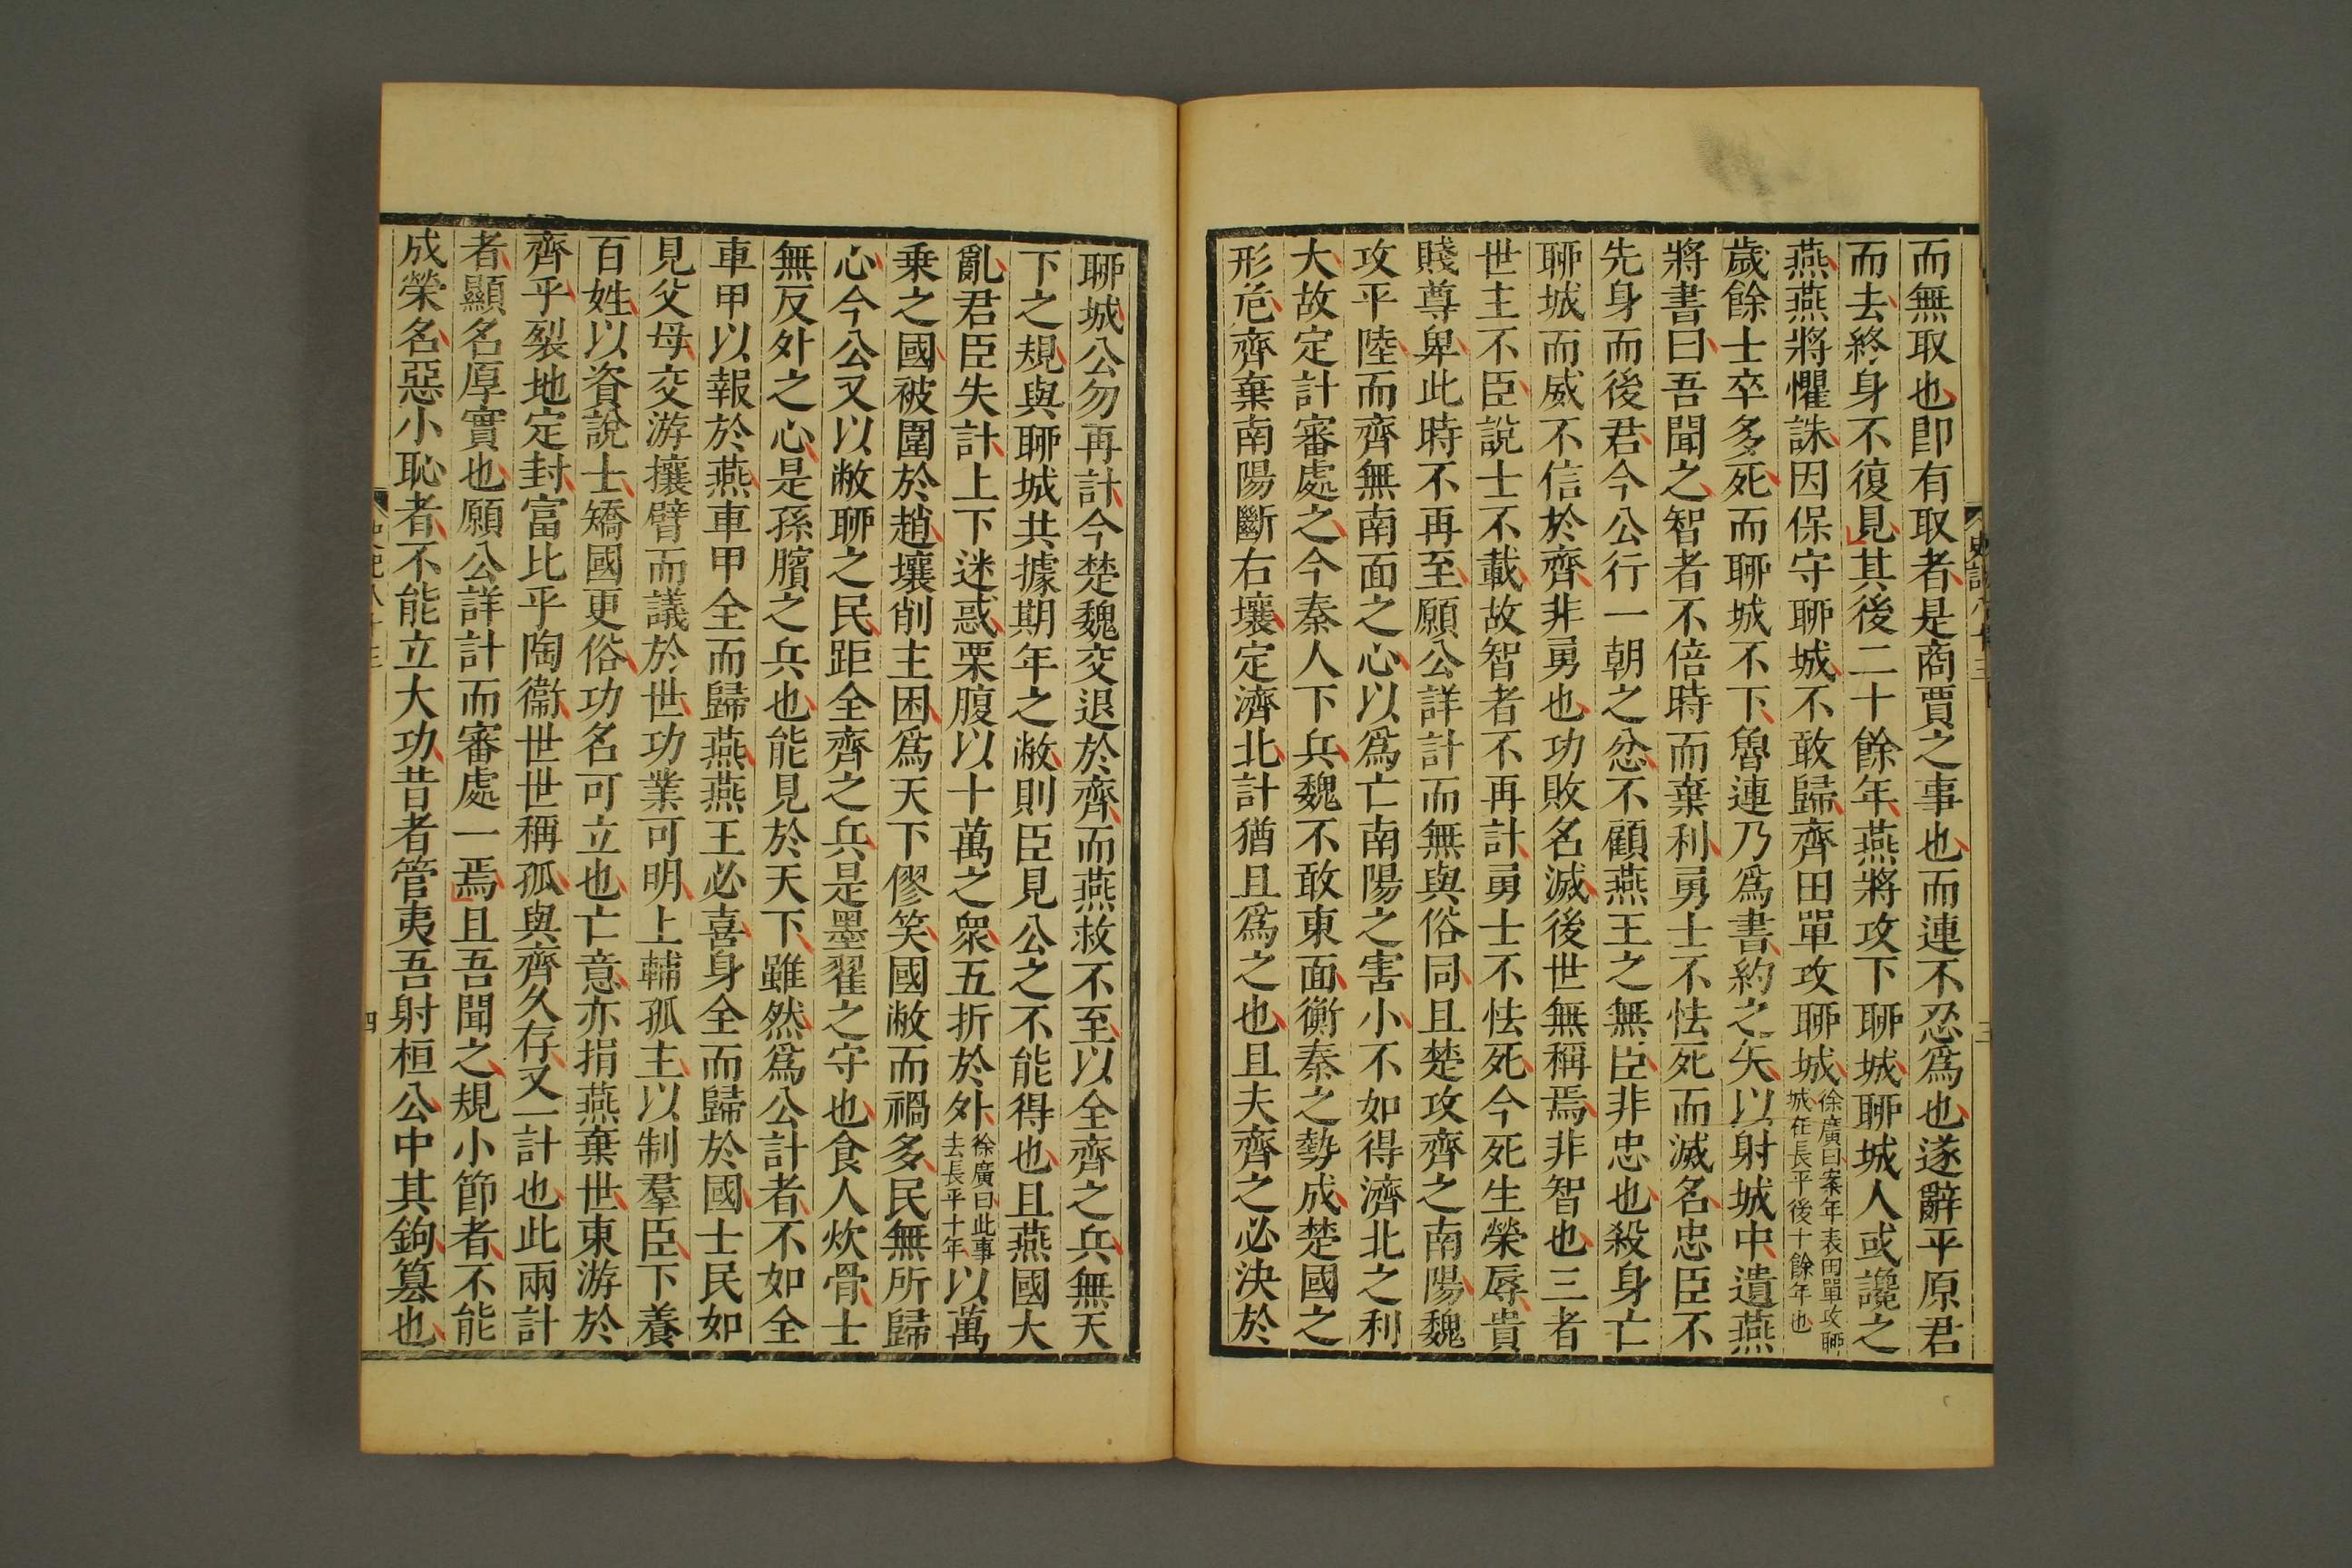 而無取也卽有取者是商賈之事也而連不忍爲也遂辭平原君
而去終身不復見其後二十餘年燕將攻下聊城聊城人或讒之
燕燕將懼誅因保守聊城不敢歸齊田單攻聊城徐廣曰案年表田單攻聊城在長平後十餘年也
歲餘士卒多死而聊城不下魯連乃爲書約之矢以射城中遺燕
將書曰吾聞之智者不倍時而棄利勇士不怯死而滅名忠臣不
先身而後君今公行一朝之忿不顧燕王之無臣非忠也殺身亡
聊城而威不信於齊非勇也功敗名滅後世無稱焉非智也三者
世主不臣說士不載故智者不再計勇士不怯死今死生榮辱貴
賤尊卑此時不再至願公詳計而無與俗同且楚攻齊之南陽魏
攻平陸而齊無南面之心以爲亡南陽之害小不如得濟北之利
大故定計審處之今秦人下兵魏不敢東面衡秦之勢成楚國之
形危齊棄南陽斷右壤定濟北計猶且爲之也且夫齊之必決於
史記八十三
三
聊城公勿再計今楚魏交退於齊而燕救不至以全齊之兵無天
下之規與聊城共據期年之敝則臣見公之不能得也且燕國大
亂君臣失計上下迷惑栗腹以十萬之衆五折於外徐廣曰此事去長平十年以萬
乗之國被圍於趙壤削主困爲天下僇笑國敝而禍多民無所歸
心今公又以敝聊之民距全齊之兵是墨翟之守也食人炊骨士
無反外之心是孫臏之兵也能見於天下雖然爲公計者不如全
車甲以報於燕車甲全而歸燕燕王必喜身全而歸於國士民如
見父母交游攘臂而議於世功業可明上輔孤主以制羣臣下養
百姓以資說士矯國更俗功名可立也亡意亦捐燕棄世東游於
齊乎裂地定封富比乎陶衞世世稱孤與齊久存又一計也此兩計
者顯名厚實也願公詳計而審處一焉且吾聞之規小節者不能
成榮名惡小恥者不能立大功昔者管夷吾射桓公中其鉤篡也
史記八十三
四